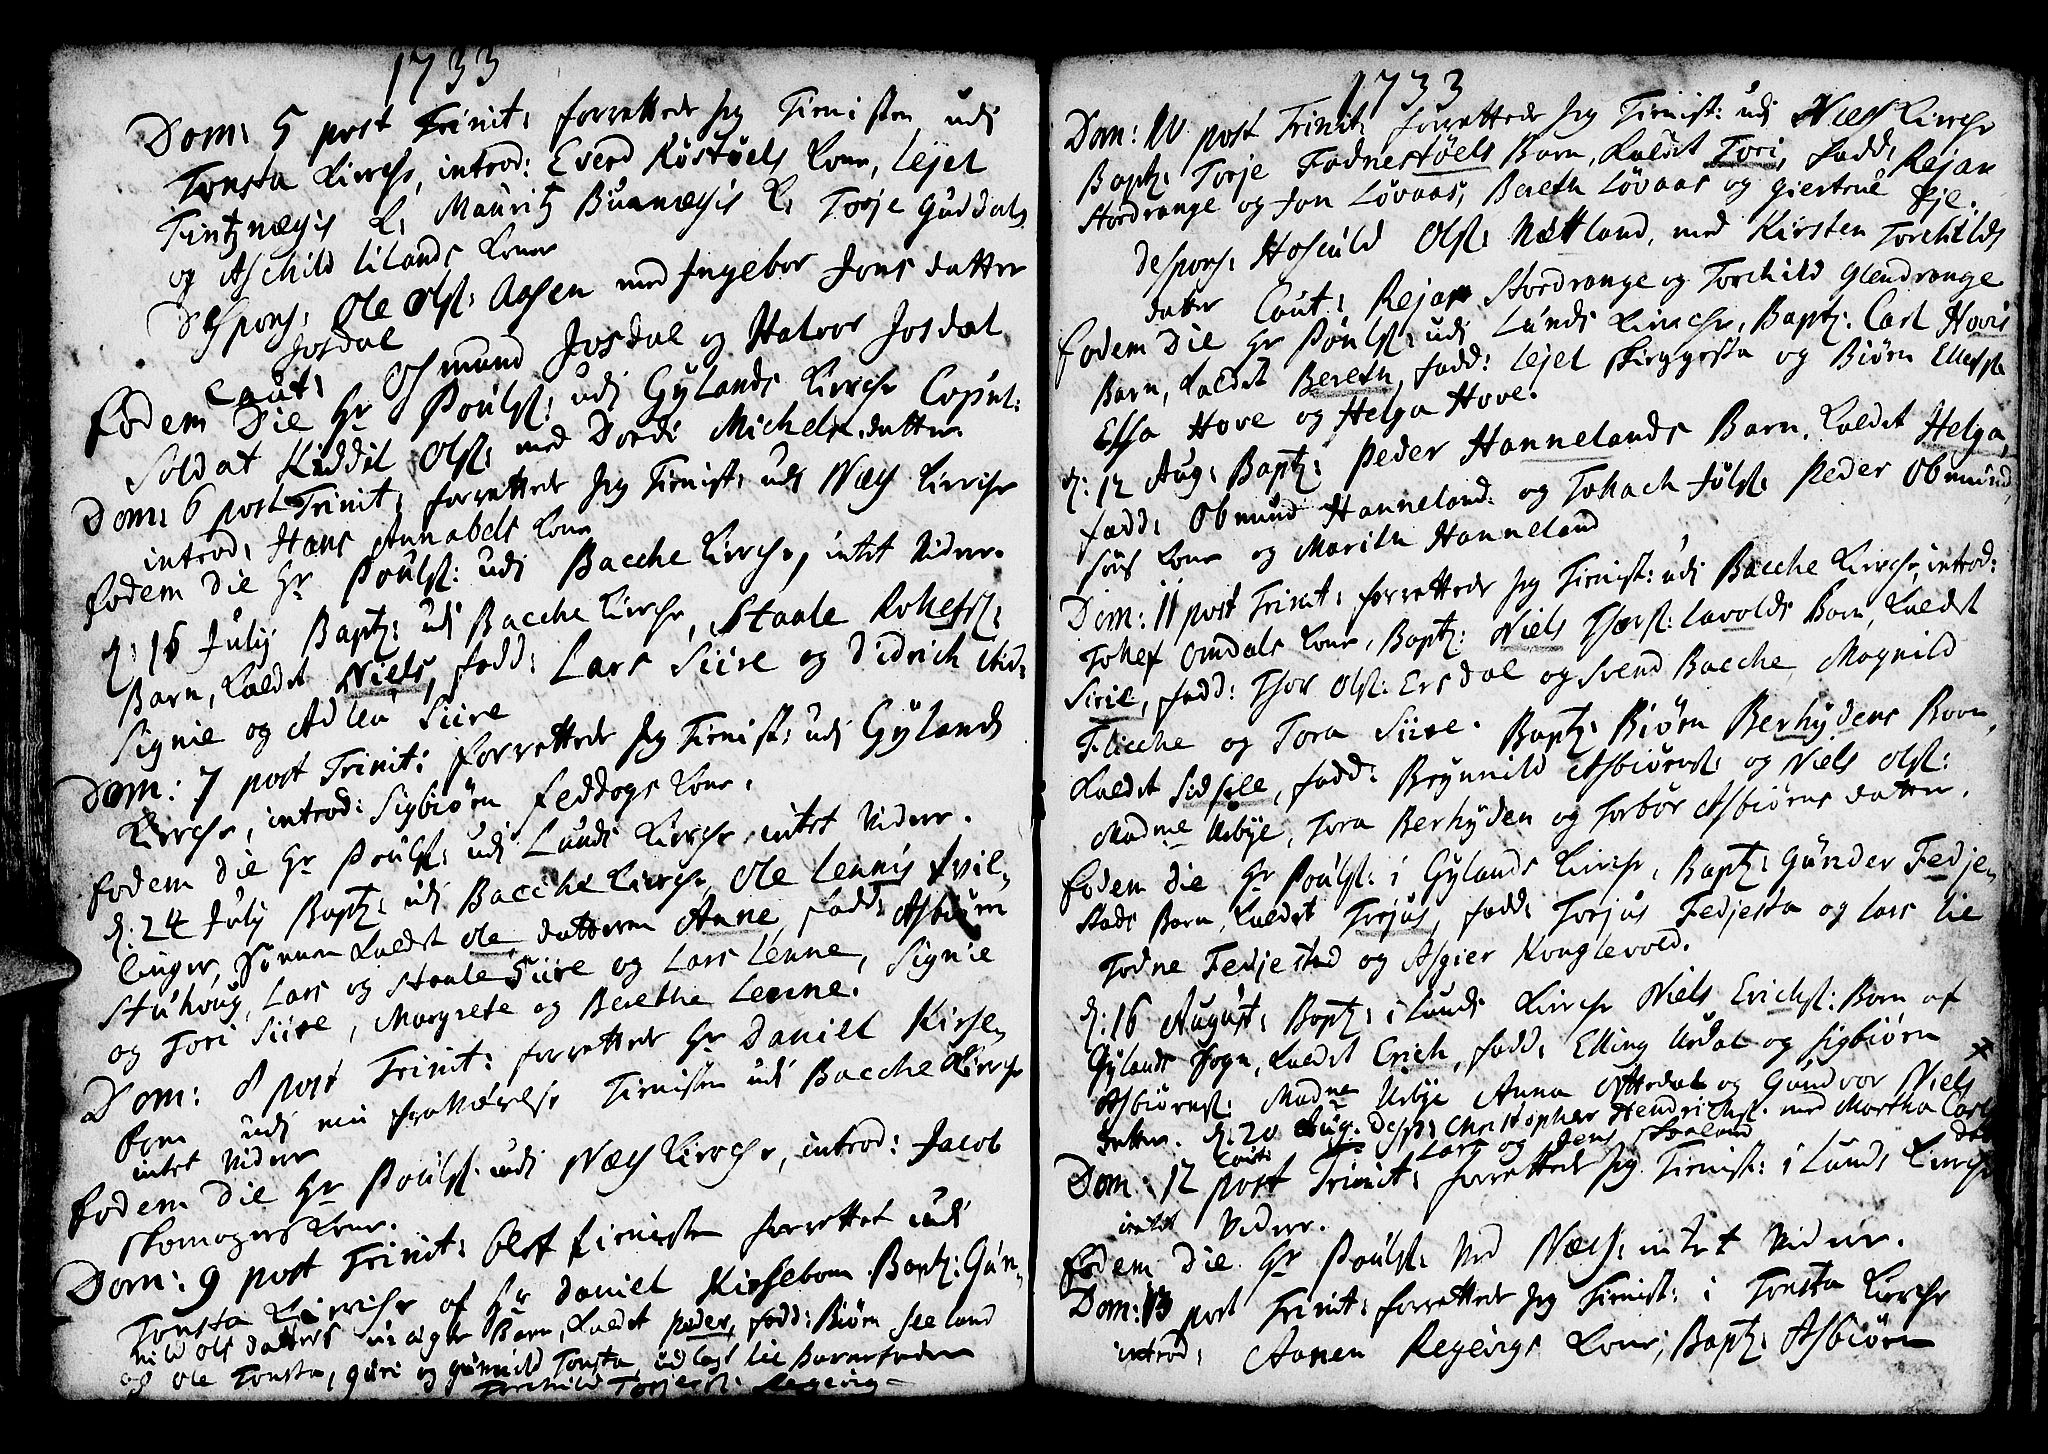 1733
Dom: 5 post Trinit: forrettede Jeg Tienisten udj
Tonsta Kirche, introd: Everd Røstøels Kone, Lejel
Tintznæsis K: Mauritz Buanæsis K: Torje Guddals
og Aschild Lilands Kone
Despons: Ole Ols: Aasen med Ingebor Jons datter
Josdal
Caut: Osmund Josdal og Halvor Josdal
Eodem Die Hr Poulss: udj Gylands Kirche Copul:
Soldat Kiddil Ols: med Dordi Michels datter
Dom: 6 post Trinit: forrettede Jeg Tienist: udj Næss Kirche
introd: Hans Annabels Kone
Eodem Die Hr Poulss: udj Bacche Kirche, intet vider.
d: 16 July Baptz: udj Bacche Kirche, Staale Rolefs:
Barn, kaldet Niels, fadd: Lars Siire og Didrich ibid:
Signie og Adleu Siire
Dom: 7 post Trinit: forrettede Jeg Tienist: udj Gylands
Kirche, introd: Sigbiørn Feddogs Kone.
Eodem die Hr Poulss: udj Lunds Kirche intet vider.
d: 24 July Baptz: udj Bacche Kirche Ole Lennis tvil-
linger, Sønnen kaldet Ole datteren Anne, fadd: Asbiørn
Stuhoug, Lars og Staale Siire og Lars Lenne, Signie
og Tori Siire, Margrete og Berethe Lenne.
Dom: 8 post Trinit: forrettede Hr Daniel Kirse-
bom udj min fraværelse Tienisten udj Bacche Kirche
intet vider
Eodem Die Hr Poulss: udj Næss Kirche, introd: Jacob
Skomagers Kone.
Dom: 9 post Trinit: blef tienisten forrettet udj
Tonsta Kirche af Hr Daniel Kirsebom Baptz: Gun-
nild Ols datters uægte Barn, kaldet Peder, fadd: Biørn Seeland
og Ole Tonsta, Guri og Gunnild Tonsta, udlagt til Barnefader
Torchild Torjes: Regevig
1733
Dom: 10 post Trinit: forrettede Jeg Tienist: udj Næss Kirche
Baptz: Torje Fodnestøels Barn, kaldet Tori, fadd: Rejar
Stordrange og Jon Løvaas, Bereth Løvaas og Giertrue Eje.
Despons: Hosculd Ols: Nettland, med Kirsten Torchilds
datter Caut: Rejar Stordrange og Torchild Glendrange
Eodem Die Hr Poulss: udj Lunds Kirche, Baptz: Carl Hovis
Barn, kaldet Bereth, fadd: Lejel Skieggesta og Biørn Ellefs:
Essa Hove og Helga Hove.
d: 12 Aug: Baptz: Peder Hannelands Barn kaldet Helga,
fadd: Obmund Hanneland og Tohach Juls: Peder Obmund
søns Kone og Marith Hanneland
Dom: 11 post Trinit: forrettede Jeg Tienist: udj Bacche Kirche, introd:
Tohef Omdals Kone, Baptz: Niels Thors: Lavolds Barn, kaldet
Sirie, fadd: Thor Ols: Ersdal og Svend Bacche, Magnild
Flicche og Tora Siire. Baptz: Biørn Berhydens Barn,
kaldet Sidsele, fadd: Brynnild Asbiørns: og Niels Ols:
Madme Urbye, Tora Berhyden og Torbor Asbiørns datter.
Eodem die Hr Poulss: i Gylands Kirche, Baptz: Gunder Fedje-
stads Barn, kaldet Torjus, fadd: Torjus Fedjesta og Lars Lie
Todne Fedjestad og Asgier Konglevold.
d: 16 August: Baptz: i Lunds Kirche Niels Erichs: Barn af
Gylands Sogn, kaldet Erich, fadd: Elling Urdal og Sigbiørn
Asbiørns: Madme Urbye Anna Øttedal og Gundvor Niels
datter. d: 20 Aug: desp: Christopher Hendrichs: med Martha Carls
dat
Caut: Lars og Jens Skaaland
Dom: 12 post Trinit: forrettede Jeg Tienist: i Lunds Kirche
intet vider.
Eodem Die Hr Poulss: ved Næss: intet vider.
Dom: 13 post Trinit: forrettede Jeg Tienist: i Tonsta Kirche
introd: Aanen Regevigs Kone, Baptz: Asbiørn